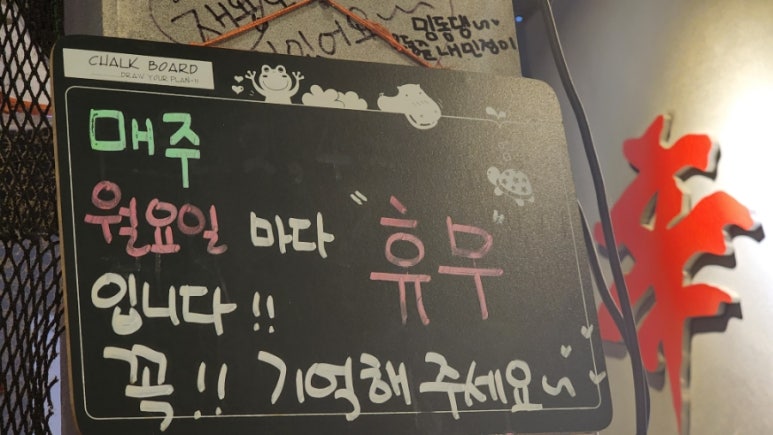 밍동댕~
내민정이
CHALK BOARD
DRAW YOUR PLAN-!!
매주
월요일 마다 "휴무"
입니다!!
꼭!! 기억해 주세요~